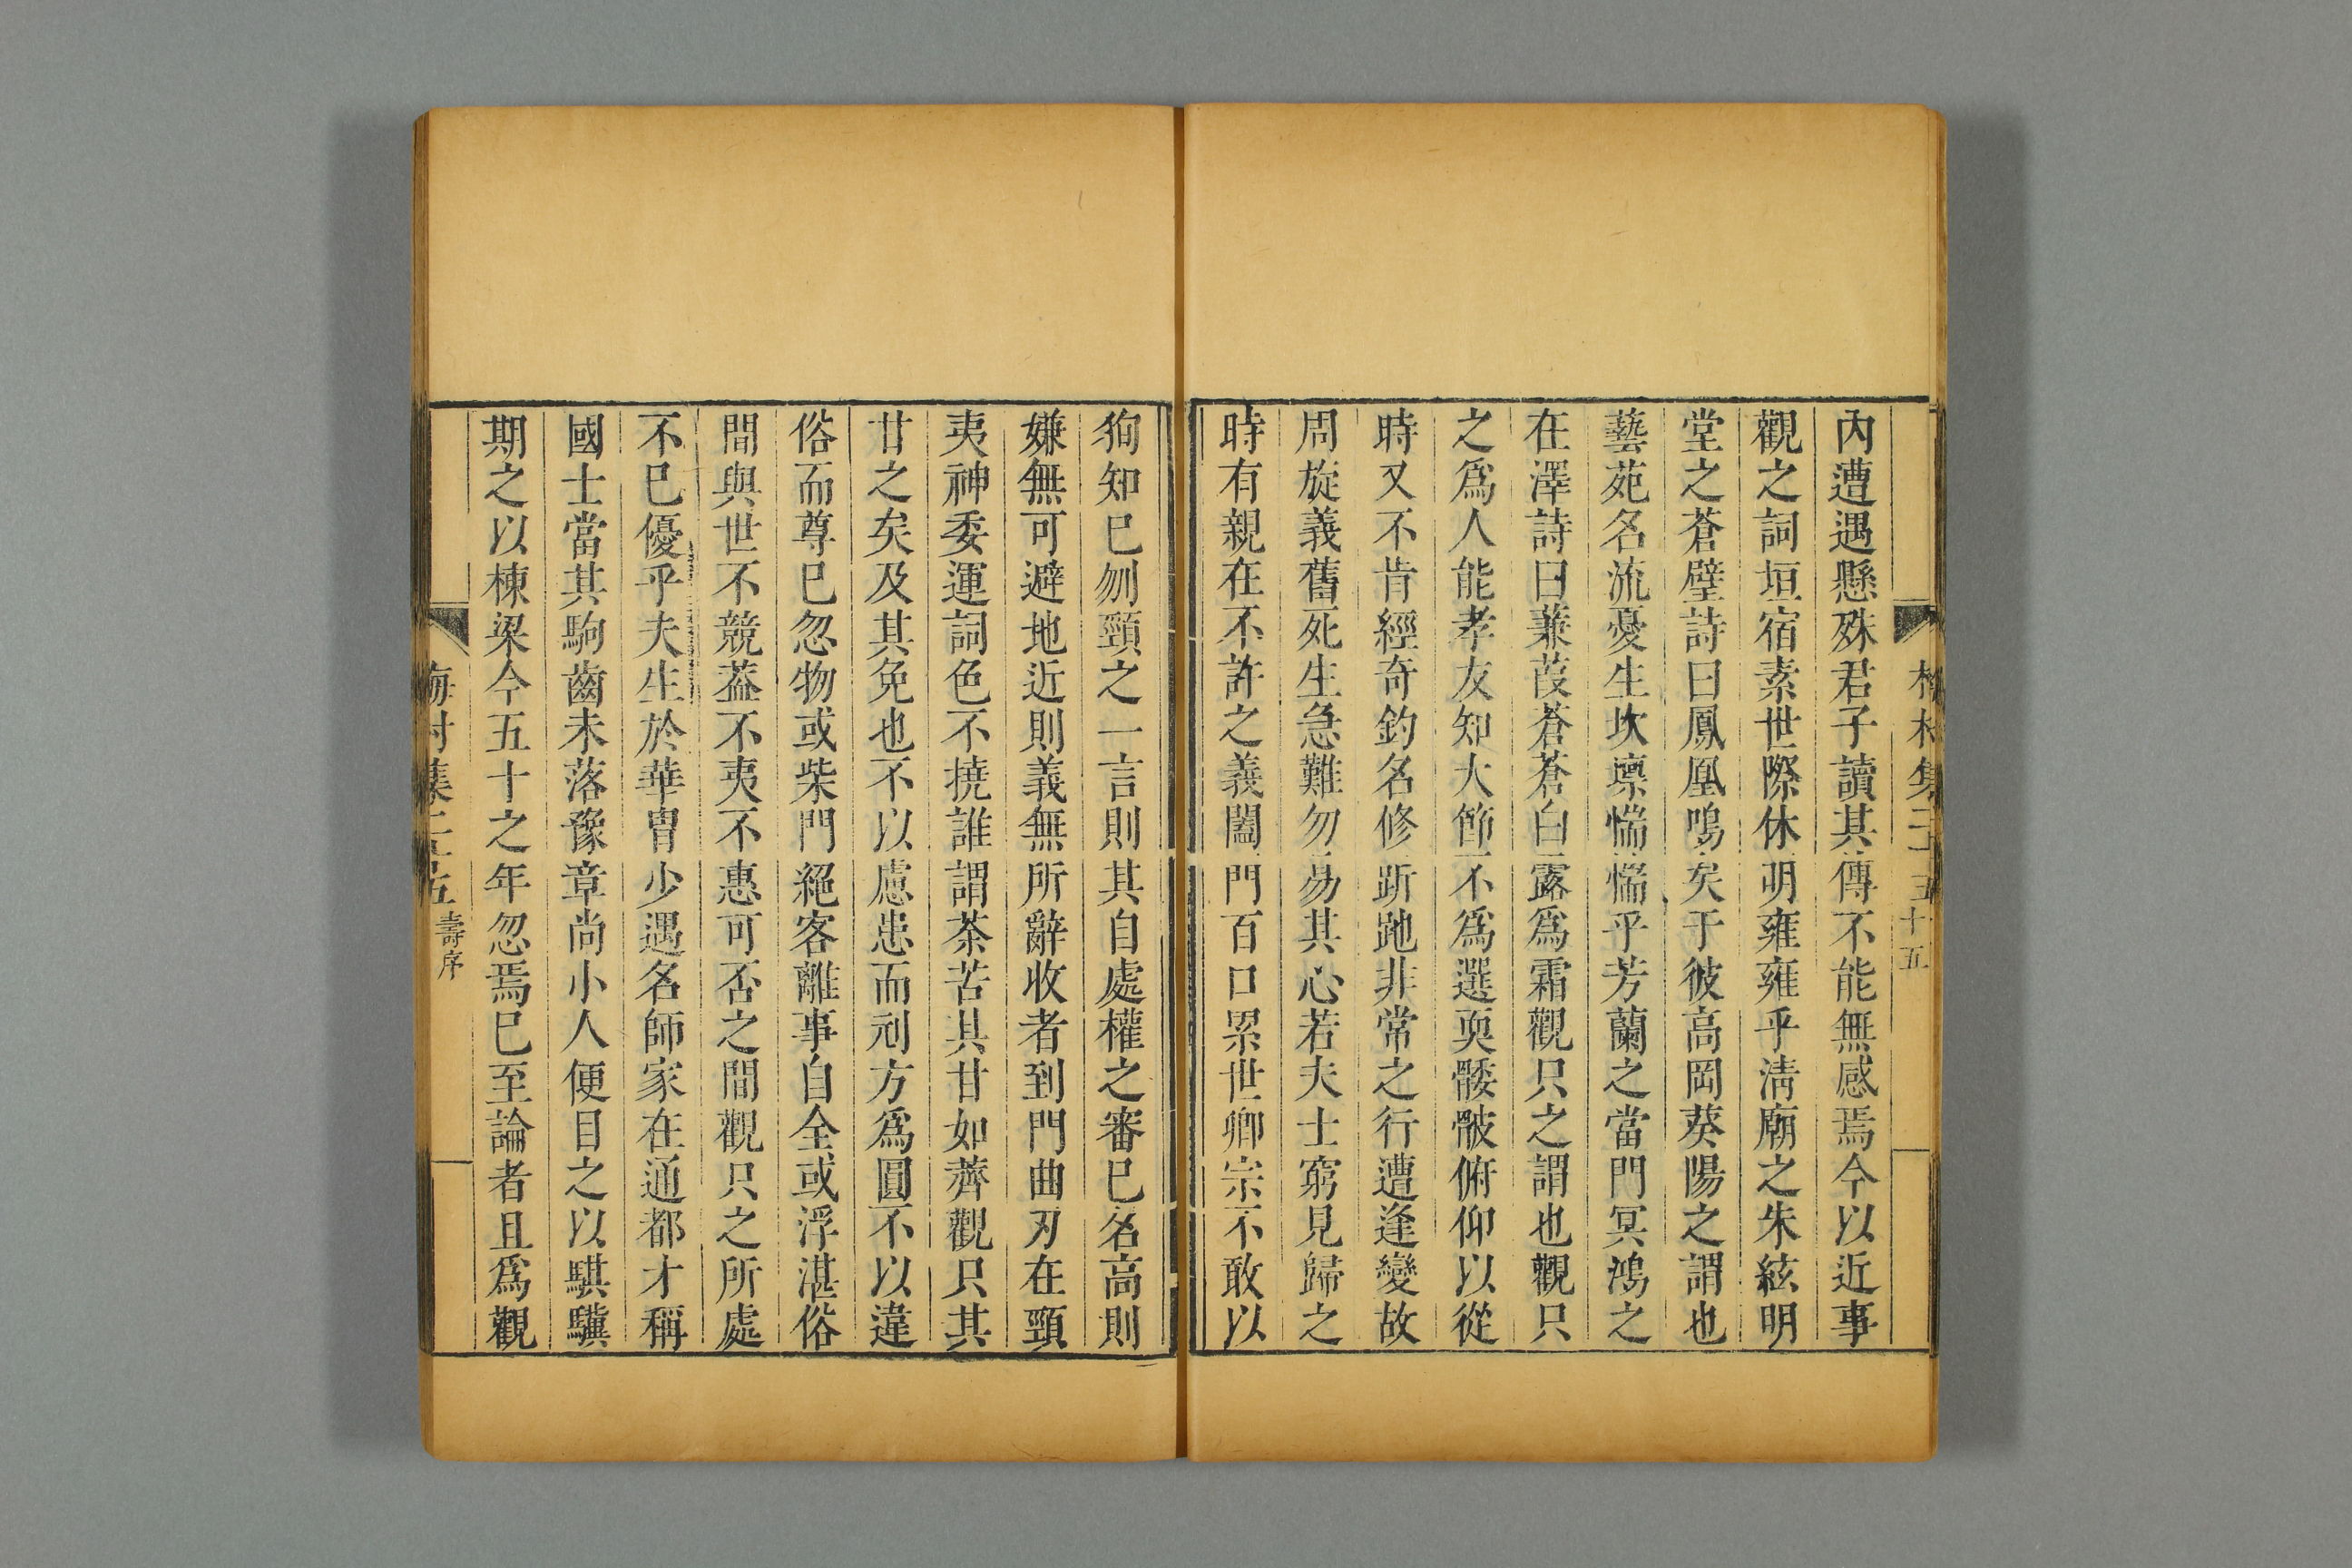 梅村集二十五 十五
內遭遇懸殊君子讀其傳不能無感焉今以近事
觀之詞垣宿素世際休明雍雍乎淸廟之朱絃明
堂之蒼璧詩曰鳳凰鳴矣于彼高岡葵陽之謂也
藝苑名流憂生坎壈惴惴乎芳蘭之當門冥鴻之
在澤詩曰蒹葭蒼蒼白露爲霜觀只之謂也觀只
之爲人能孝友知大節不爲選耎骫骳俯仰以從
時又不肯經奇釣名修跅跪非常之行遭逢變故
周旋義舊死生急難勿易其心若夫士窮見歸之
時有親在不許之義闔門百口累世卿宗不敢以
狥知已刎頸之一言則其自處權之審已名高則
嫌無可避地近則義無所辭收者到門曲刃在頸
夷神委運詞色不撓誰謂荼苦其甘如薺觀只其
甘之矣及其免也不以慮患而刓方爲圓不以違
俗而尊已忽物或柴門絕客離事自全或浮湛俗
間與世不競葢不夷不惠可否之間觀只之所處
不已優乎夫生於華冑少遇名師家在通都才稱
國士當其駒齒未落豫章尚小人便目之以騏驥
期之以棟梁今五十之年忽焉已至論者且爲觀
梅村集二十五 壽序